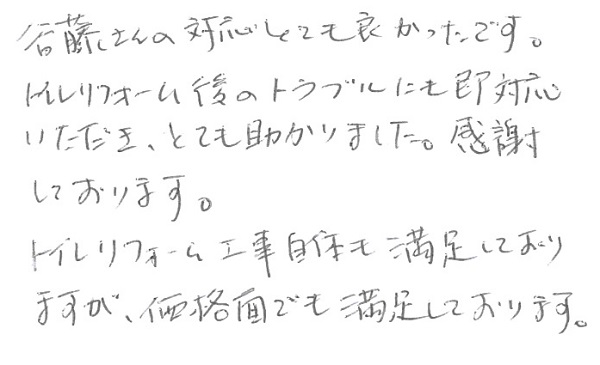 斉藤さんの対応とても良かったです。
トイレリフォーム後のトラブルにも即対応
いただき、とても助かりました。感謝
しております。
トイレリフォーム工事自体も満足しており
ますが、価格面でも満足しております。